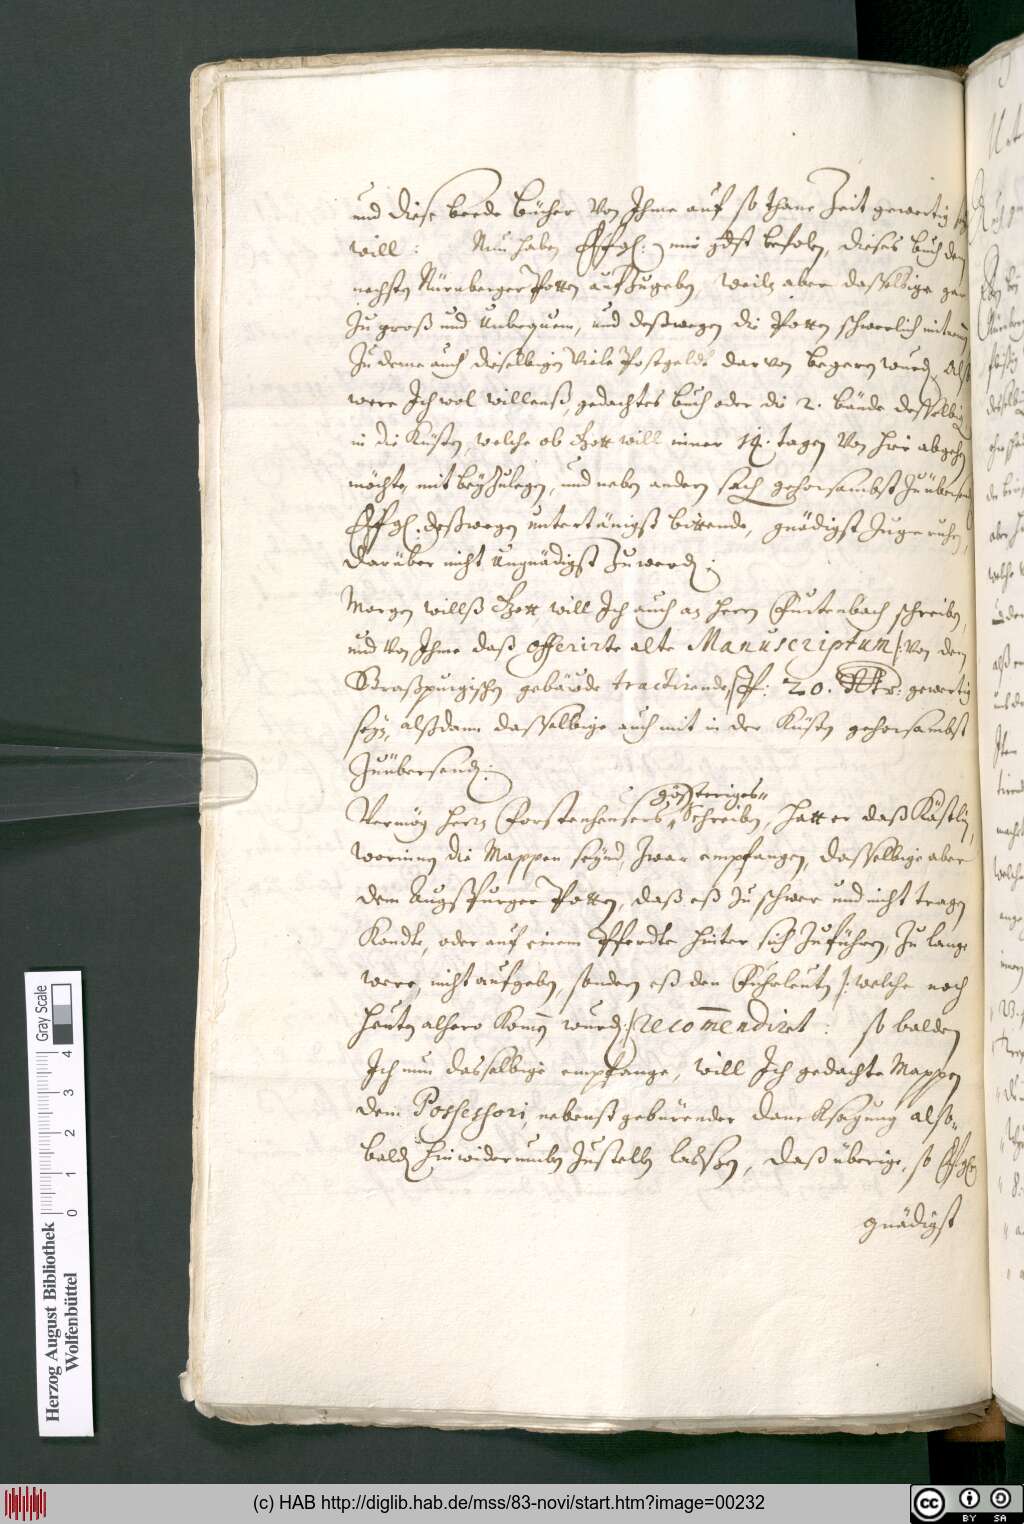 und diese beede Bücher von Ihme auf so thane Zeit gewertig
will : Nun haben EfGl: mir gdst befolen, dieses buch dem
nechsten Nürnberger Potten aufzugeben, weiln aber dasselbige gar
zu groß und unbequem, und deßwegen die Potten schwerlich
Zu deme auch dieselbigen viele Postgelds darvon begeren wurden, Alß
were Ich wol willenß, gedachtes buch oder die 2. bände desselbigen
in die Küsten, welche ob Gott will inner 14. tagen von hir abgehen
möchte, mit beyzulegen, und neben andern sach gehorsambst zuübersenden
EfGl: deßwegen untertänigst bittende, gnädigst zugeruhen,
darüber nicht ungnädigst zuwerden :
Morgen willß Gott, will Ich auch an herrn Furtenbach schreiben,
und von Ihme daß offerirte alte Manuscriptum /: von dem
Straßpurgischen gebäude tractirende, pf: 20. Rthr: gewertig
sein, alßdann dasselbige auch mit in der Küsten gehorsambst
Zuübersenden :
Vermög herrn Forstenheusers Schreiben, hatt er daß Kästlin,
gösteriges"
worinnen die Mappen seynd, zwar empfangen, dasselbige aber
dem Augspurger Potten, daß eß zu schwer und nicht tragen
Kondte, oder auf einem Pferdte hinter sich zuführen, zu lange
were, nicht aufgeben, sondern eß den Fuhrleuten /: welche noch
heuten alhero Komen wurden :/ recomendiret : so balden
Ich nun dasselbige empfange, will Ich gedachte Mappen
dem Possessori, nebenst gebürender dancksagung also"
balden hinwiderumben zustellen lassen, daß überige, so EfGl:
gnädigst
Herzog August Bibliothek
Wolfenbüttel
0 1 2 3 4
Gray Scale
(c) HAB http://diglib.hab.de/mss/83-novi/start.htm?image=00232
cc BY SA